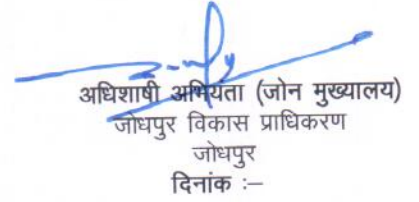 अधिशाषी अभियंता (जोन मुख्यालय)
जोधपुर विकास प्राधिकरण
जोधपुर
दिनांक :–